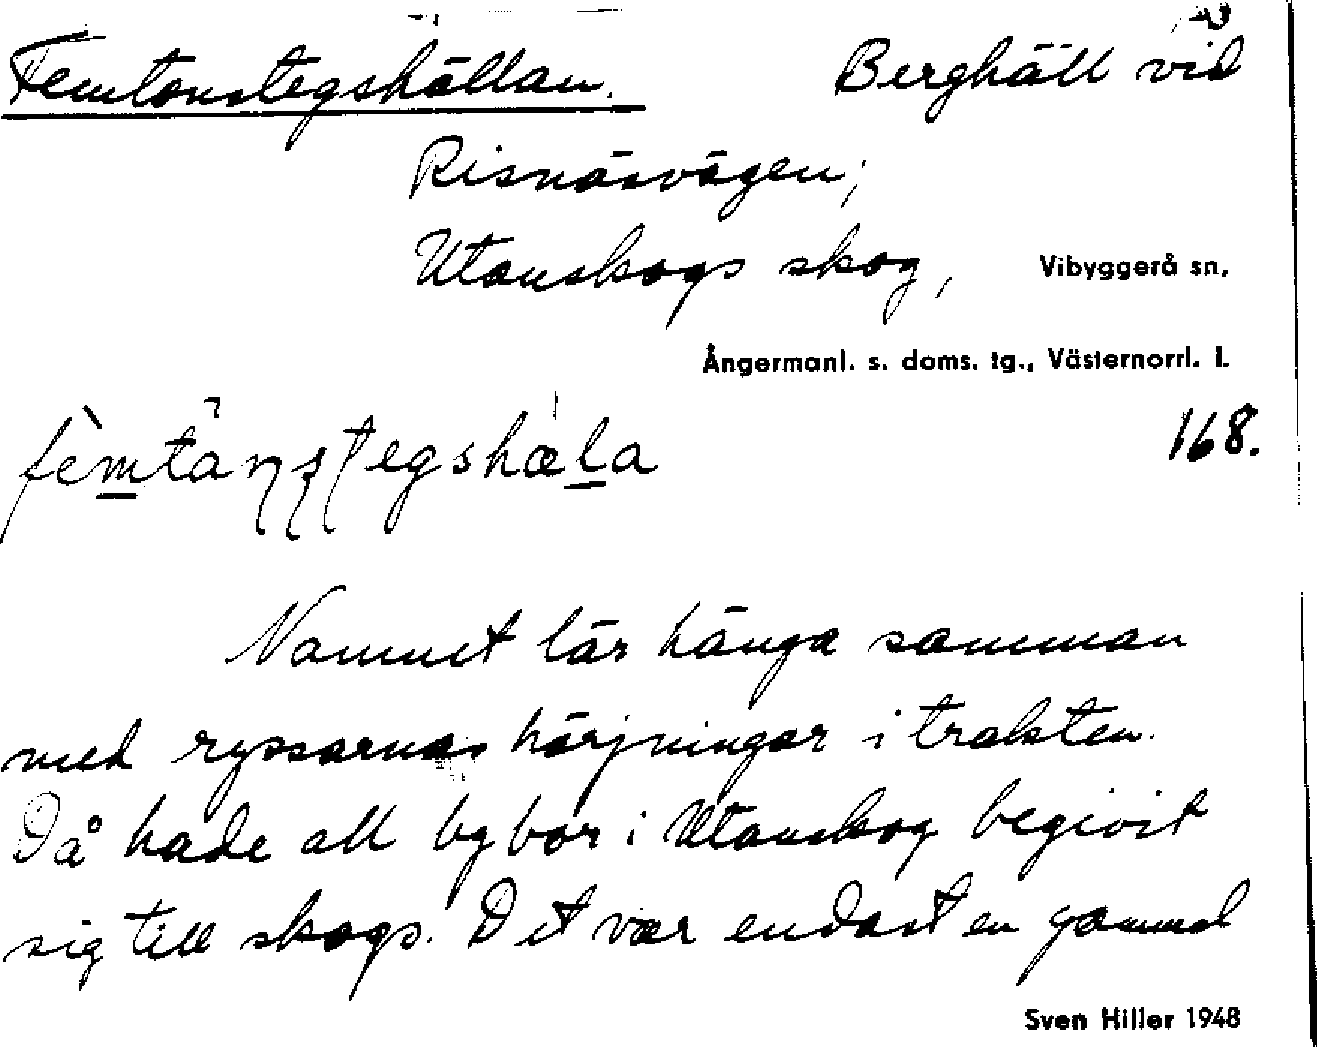 Femtonstegshällan. Berghäll vid
Risnäsvägen;
Utanskogs skog, Vibyggerå sn,
Ångermanl. s. doms. tg., Västernorrl. l.
168.
Namnet lär hänga samman
med ryssarnas härjningar i trakten.
Då hade all bybor i Utanskog begivit
sig till skogs. Det var endast en gammal
Sven Hiller 1948